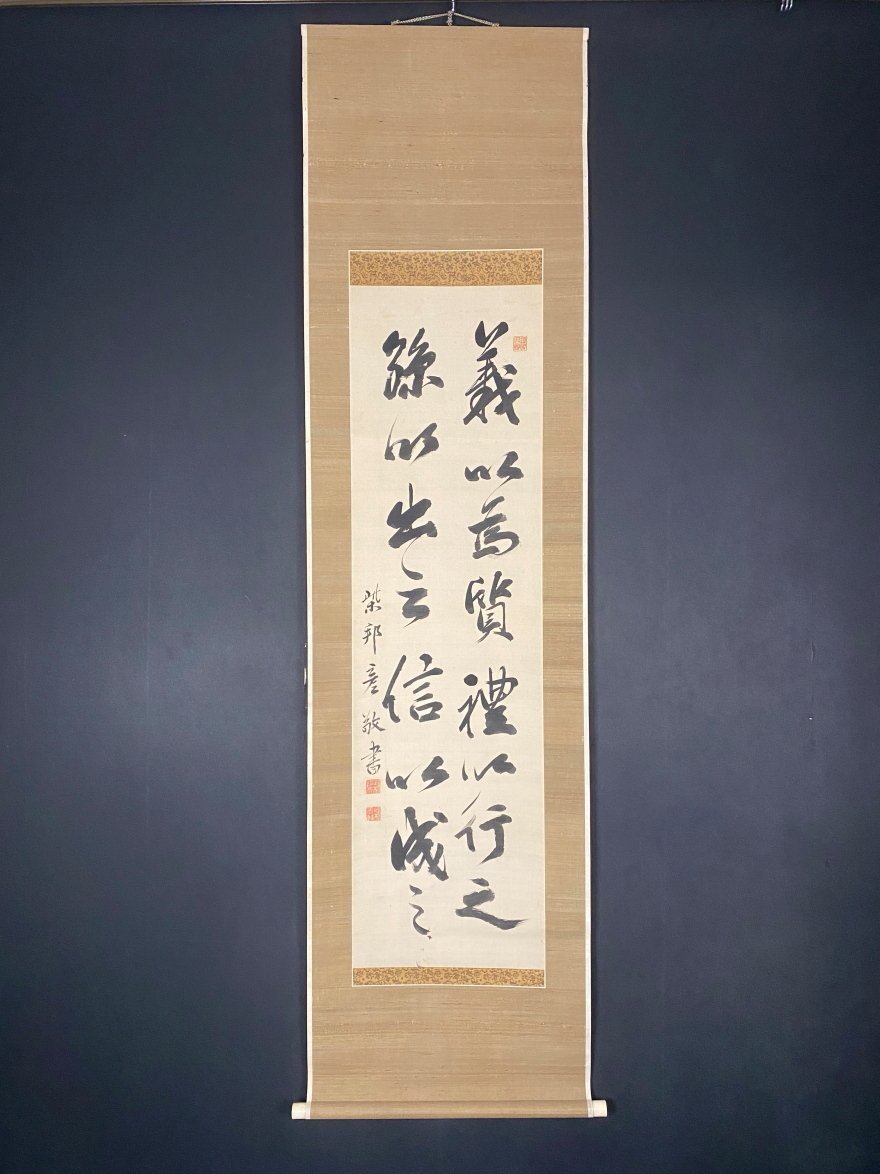 義以為質禮以行之
孫以出之信以成之
柴邦彦敬書